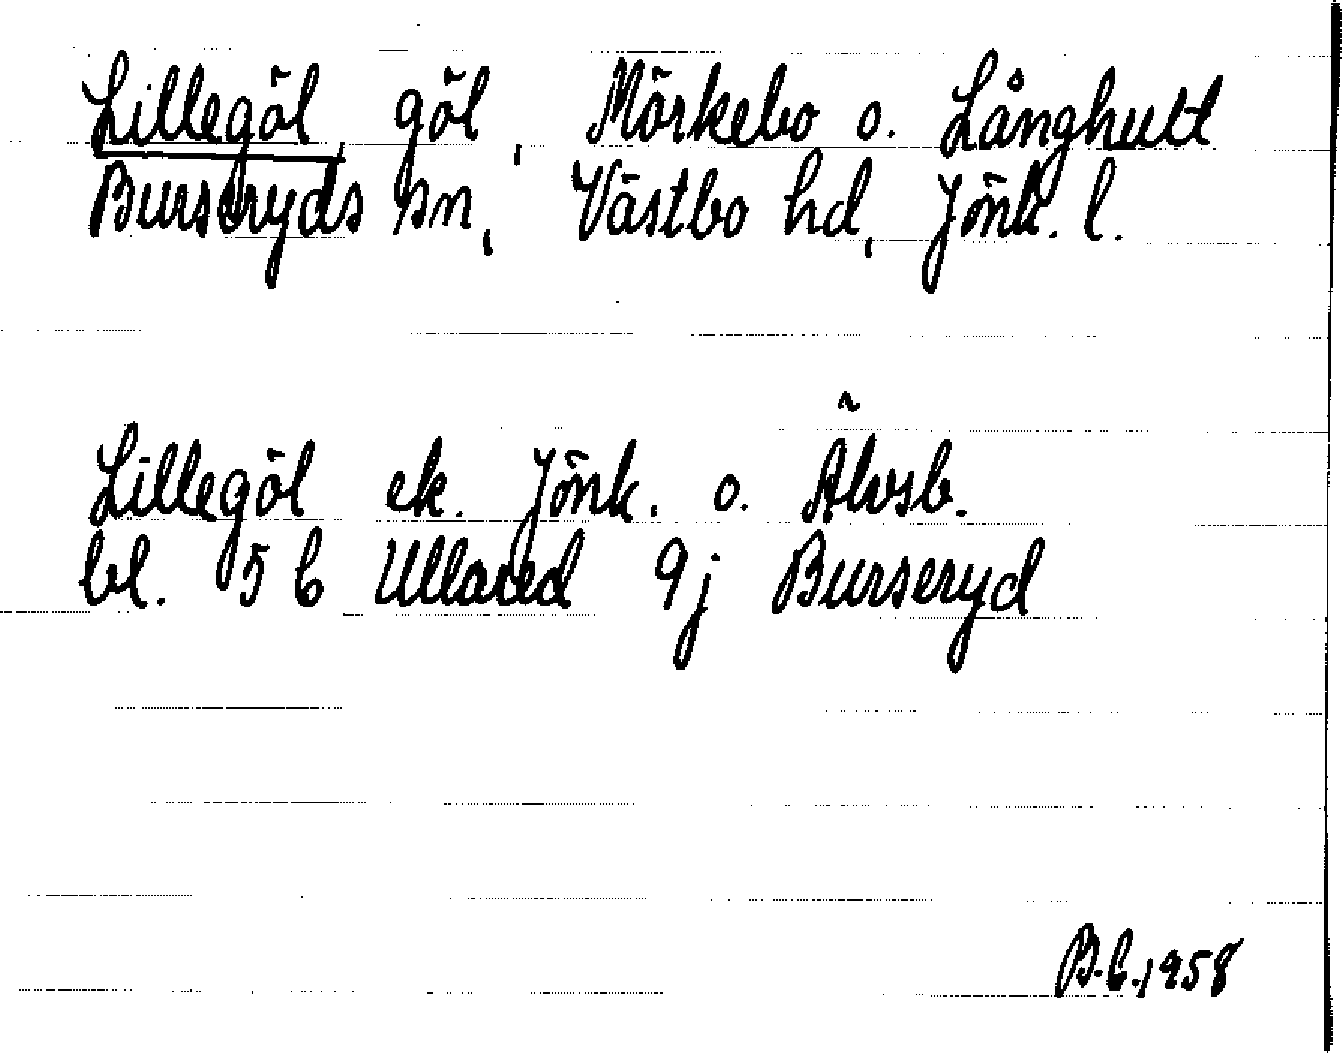 Lillegöl, göl, Mörkebo o. Långhult
Burseryds sn, Västbo hd, Jönk. l.
Lillegöl ek. Jönk. o. Älvsb.
bl. 5 C Ullared 9j Burseryd
B.C.1958